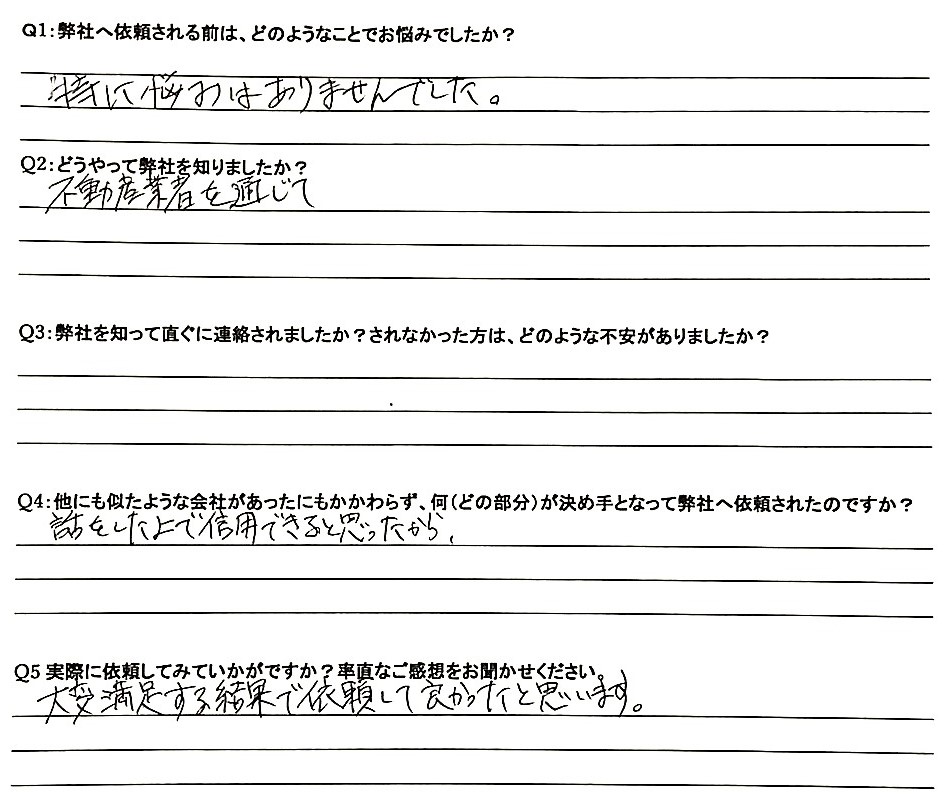 Q1:弊社へ依頼される前は、どのようなことでお悩みでしたか？
特に悩みはありませんでした。
Q2:どうやって弊社を知りましたか？
不動産業者を通じて
Q3:弊社を知って直ぐに連絡されましたか？されなかった方は、どのような不安がありましたか？
Q4:他にも似たような会社があったにもかかわらず、何（どの部分）が決め手となって弊社へ依頼されたのですか？
話をした上で信用できると思ったから、
Q5 実際に依頼してみていかがですか？率直なご感想をお聞かせください。
大変満足する結果で依頼して良かったと思います。